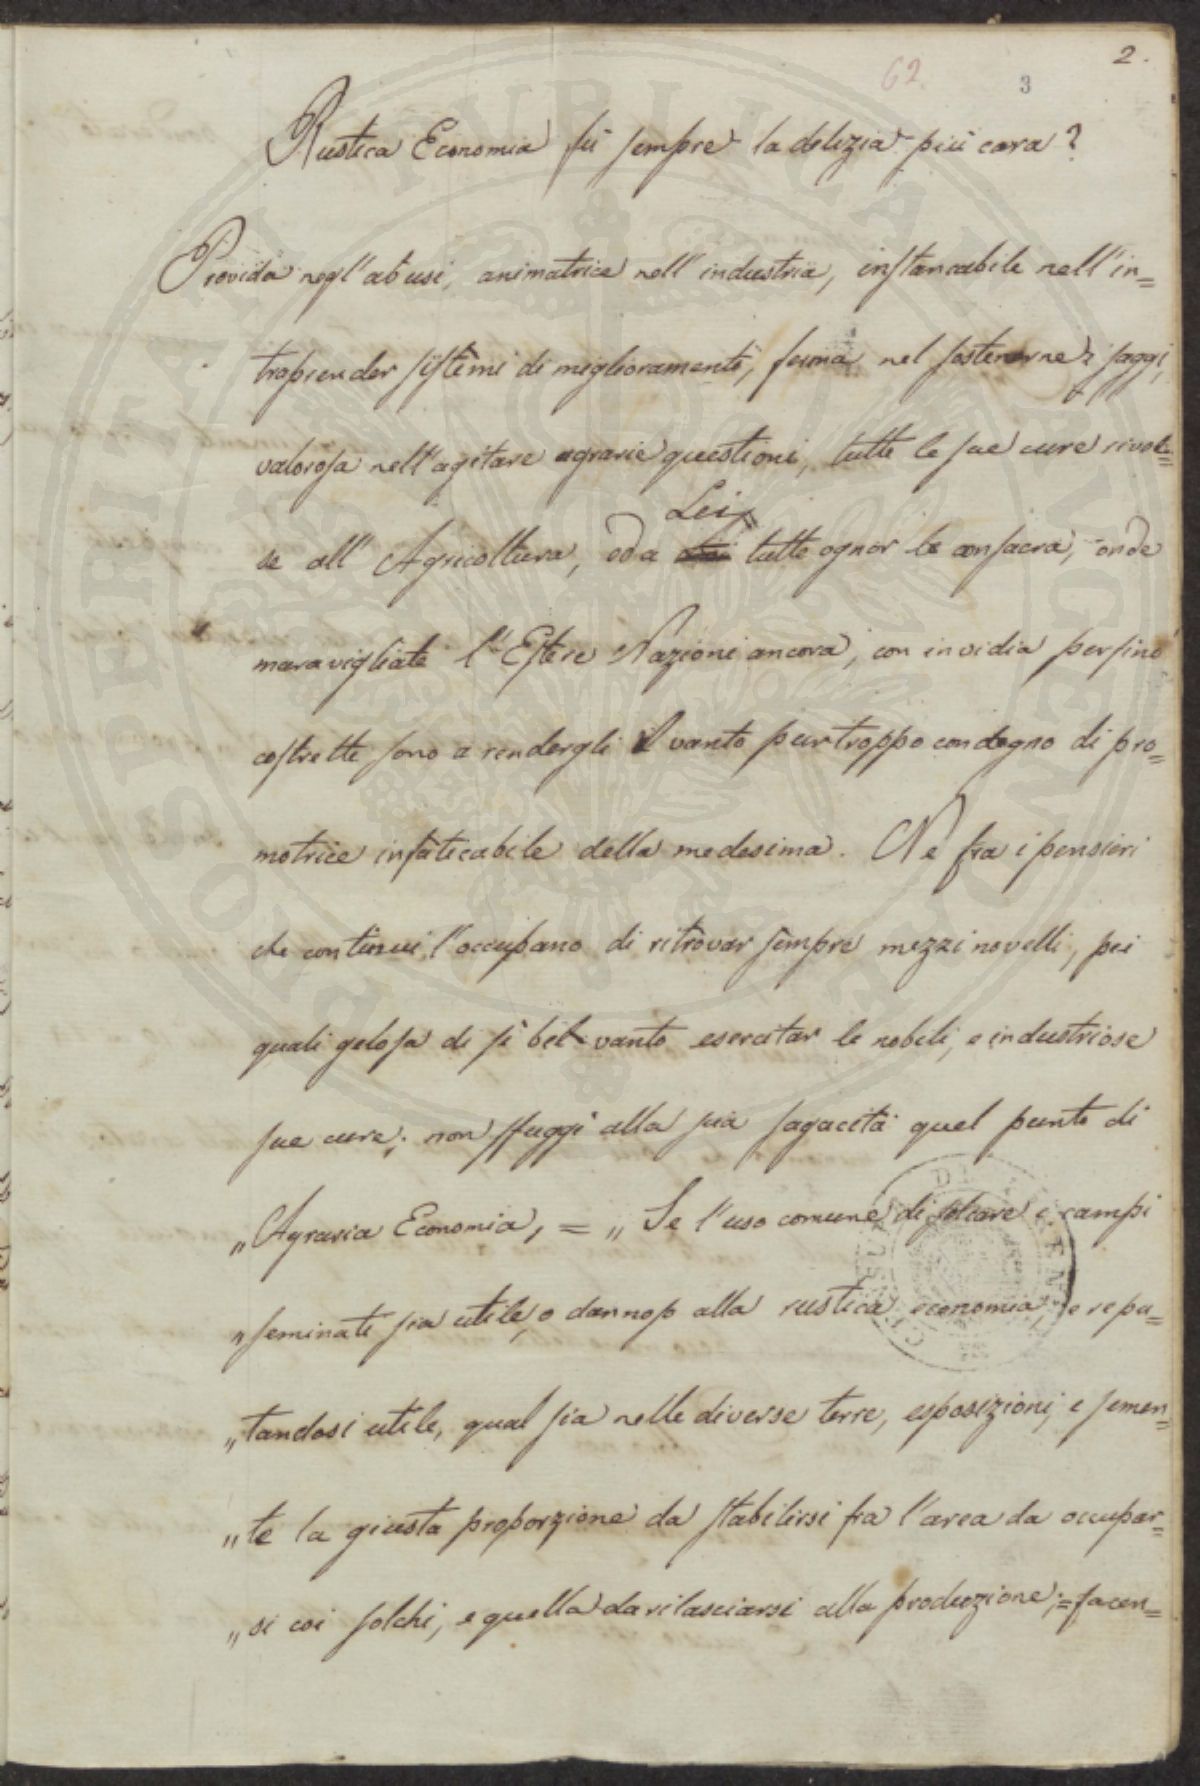 2.
62.
3
Rustica Economia fù sempre la delizia più cara?
Provida negl'abusi, animatrice nell'industria, instancabile nell'in=
traprender sistemi di miglioramenti, ferma nel sostenerne i saggi,
valorosa nell'agitare agrarie questioni, tutte le sue cure rivol=
Lei
se all'Agricoltura, ed a tutte ognor le consacra, onde
maravigliate l'Estere Nazioni ancora, con invidia persino
costrette sono a rendergli il vanto purtroppo condegno di pro=
motrice infaticabile della medesima. Ne fra i pensieri
che continui l'occupano di ritrovar sempre mezzi novelli, pei
quali gelosa di sì bel vanto esercitar le nobili, e industriose
sue cure; non sfuggì alla sua sagacità quel punto di
„Agraria Economia, = „Se l'uso comune di solcare i campi
„seminati sia utile, o dannoso alla rustica economia, e repu=
„tandosi utile, qual sia nelle diverse terre, esposizioni, e semen=
„te la giusta proporzione da stabilirsi fra l'area da occupar=
„si coi solchi, e quella da rilasciarsi alla produzione; = facen=